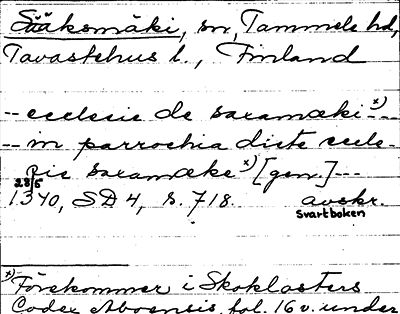 Sääksmäki, sn, Tammela hd,
Tavastehus l., Finland
-- ecclesie de saxamæki x) ---
-- in parrochia dicte eccle-
sie saxamæke x) [gen.] ---
28/5
1340, SD 4, s. 718. avskr.
Svartboken
x) Förekommer i Skoklosters
Codex Aboensis, fol. 16 v. under